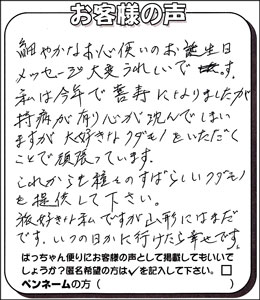 お客様の声
細やかなお心使いのお誕生日
メッセージ大変うれしいです。
私は今年で喜寿になりましたが
持病が有り心が沈んでしまい
ますが大好きなクダモノをいただく
ことで頑張っています。
これからも種々のすばらしいクダモノ
を提供して下さい。
旅好きな私ですが山形にはまだ
です。いつの日かに行けたら幸せです。
ぱっちゃん便りにお客様の声として掲載してもいいで
しょうか?匿名希望の方は✓を記入して下さい。□
ペンネームの方( )